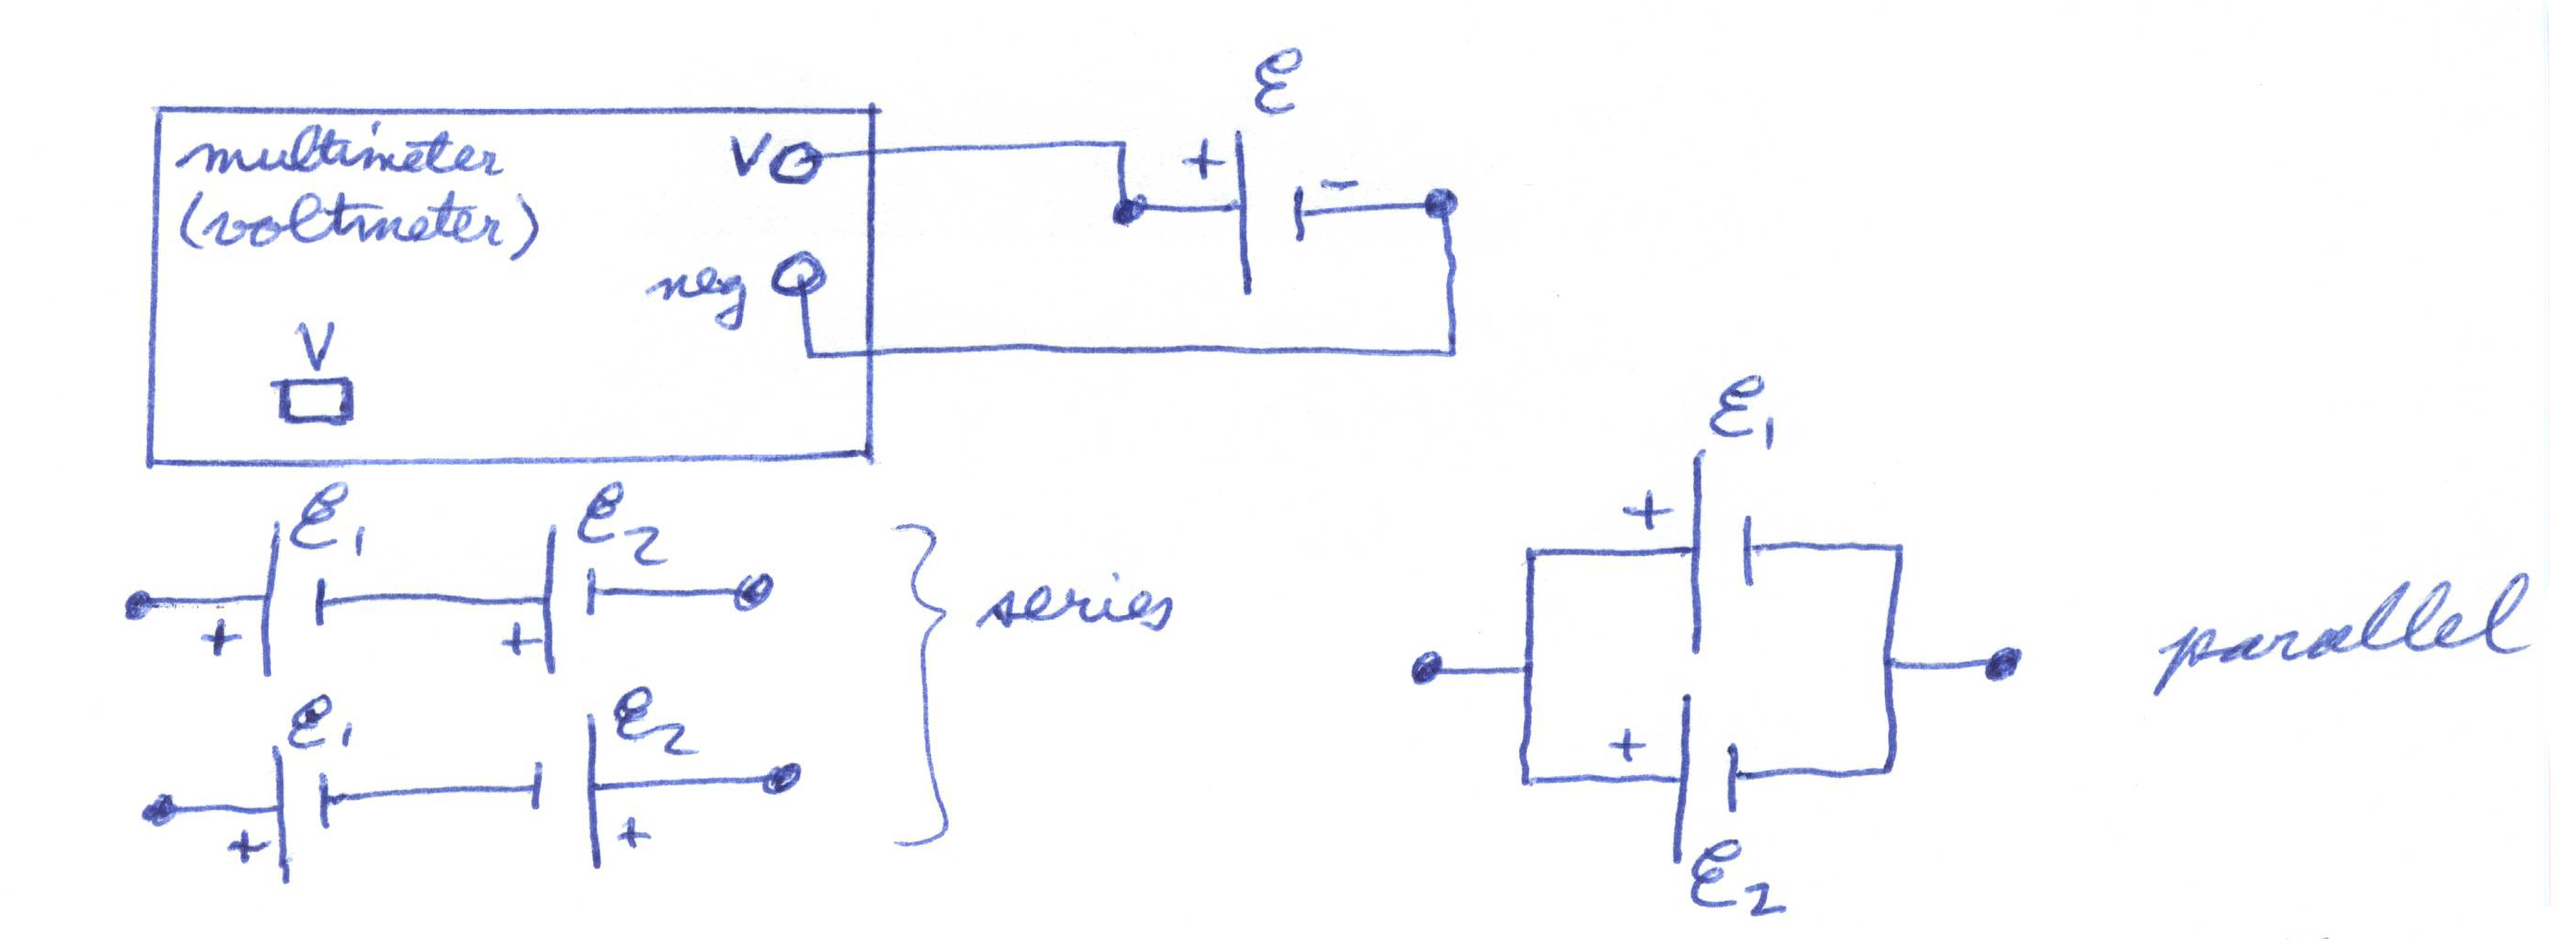 multimeter
(voltmeter)
V
neg
V
ℰ
+ -
ℰ1 ℰ2
+ +
ℰ1 ℰ2
+ +
series
ℰ1
+
+
ℰ2
parallel